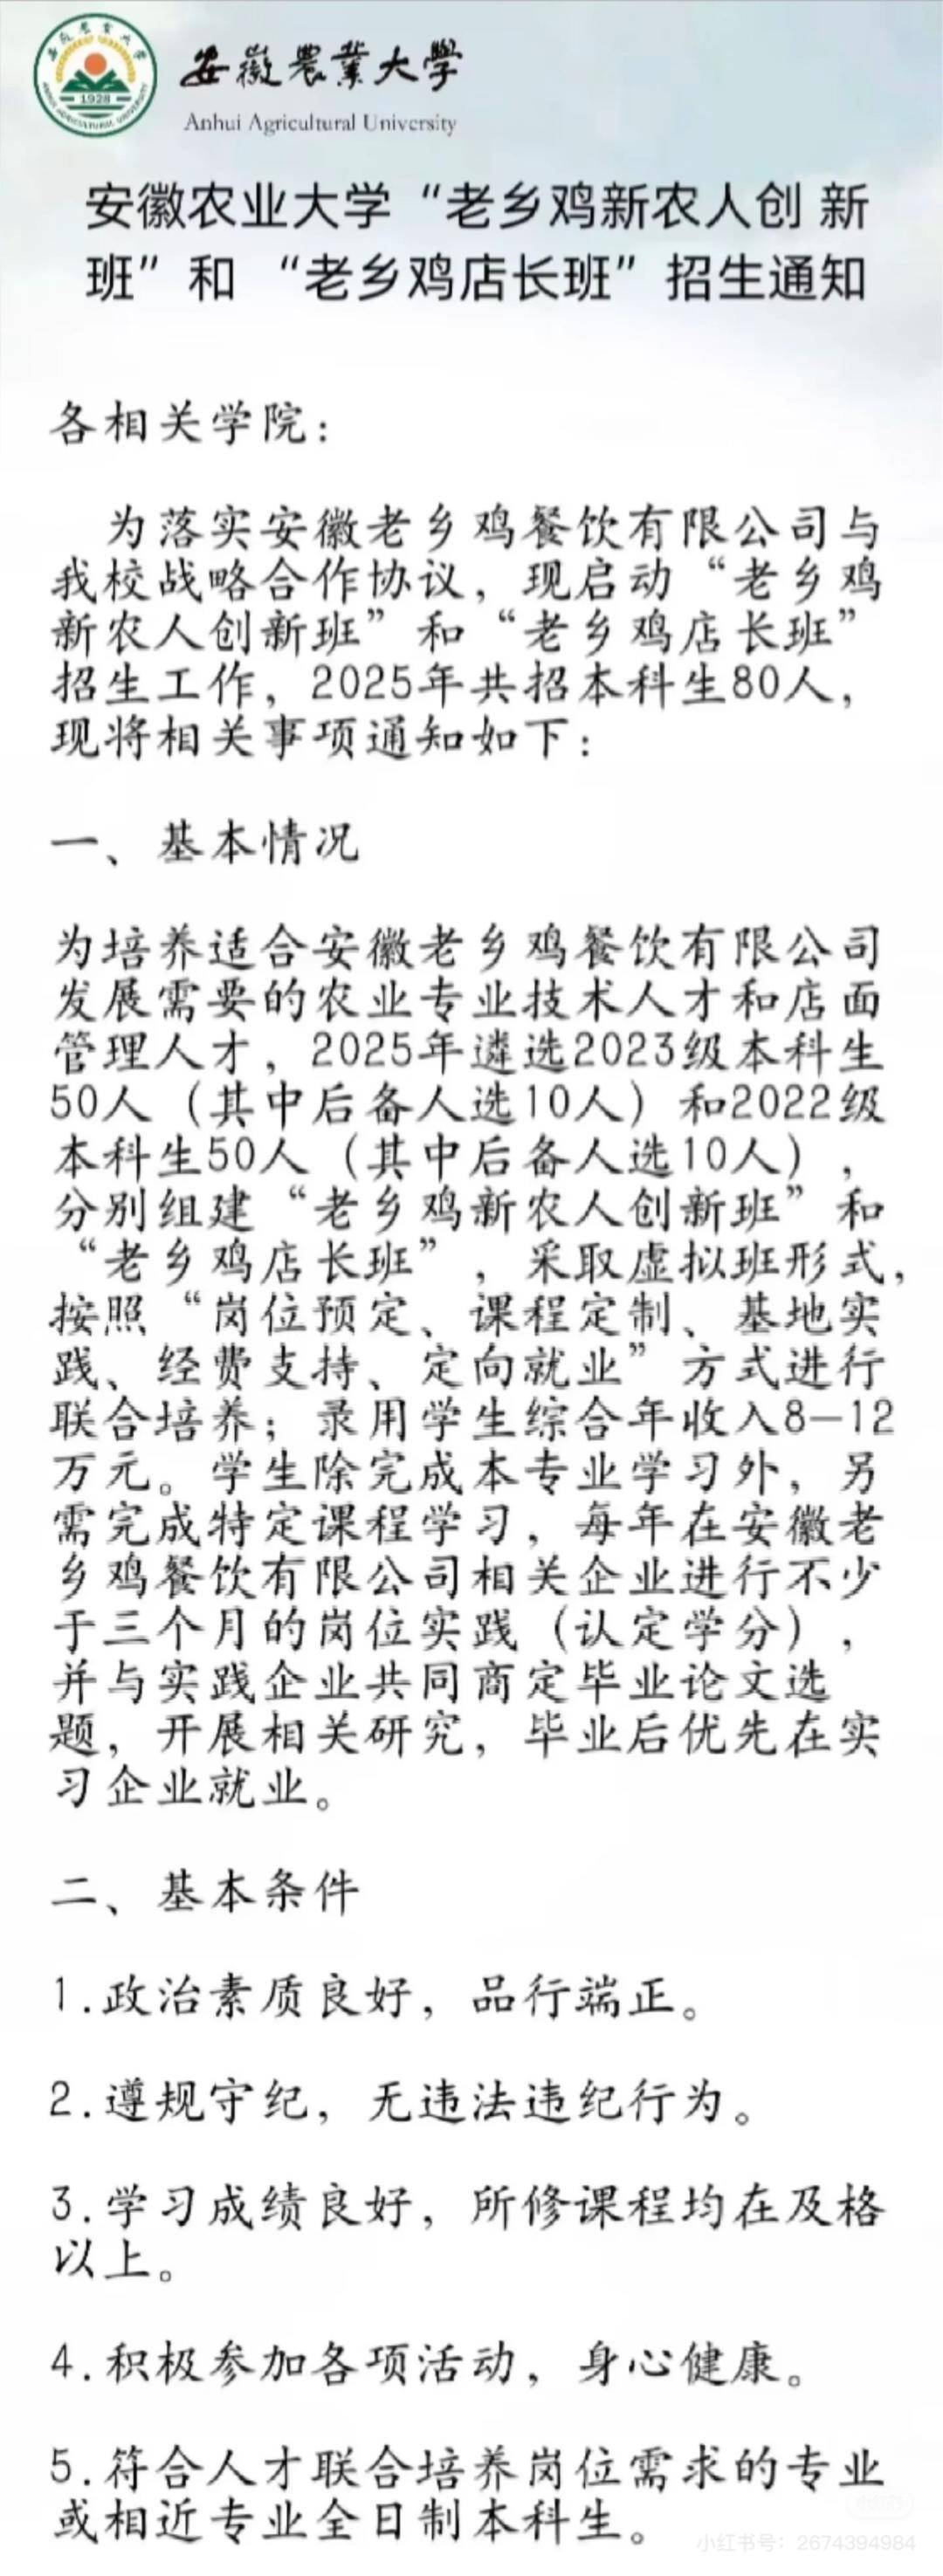 安徽农业大学
1928
ANHUI AGRICULTURAL UNIVERSITY
安徽農業大學
Anhui Agricultural University
安徽农业大学“老乡鸡新农人创 新
班”和 “老乡鸡店长班”招生通知
各相关学院：
为落实安徽老乡鸡餐饮有限公司与
我校战略合作协议，现启动“老乡鸡
新农人创新班”和“老乡鸡店长班”
招生工作，2025年共招本科生80人，
现将相关事项通知如下：
一、基本情况
为培养适合安徽老乡鸡餐饮有限公司
发展需要的农业专业技术人才和店面
管理人才，2025年遴选2023级本科生
50人（其中后备人选10人）和2022级
本科生50人（其中后备人选10人），
分别组建“老乡鸡新农人创新班”和
“老乡鸡店长班”，采取虚拟班形式，
按照“岗位预定、课程定制、基地实
践、经费支持、定向就业”方式进行
联合培养；录用学生综合年收入8—12
万元。学生除完成本专业学习外，另
需完成特定课程学习，每年在安徽老
乡鸡餐饮有限公司相关企业进行不少
于三个月的岗位实践（认定学分），
并与实践企业共同商定毕业论文选
题，开展相关研究，毕业后优先在实
习企业就业。
二、基本条件
1.政治素质良好，品行端正。
2.遵规守纪，无违法违纪行为。
3.学习成绩良好，所修课程均在及格
以上。
4.积极参加各项活动，身心健康。
5.符合人才联合培养岗位需求的专业
或相近专业全日制本科生。
小红书号：2674394984